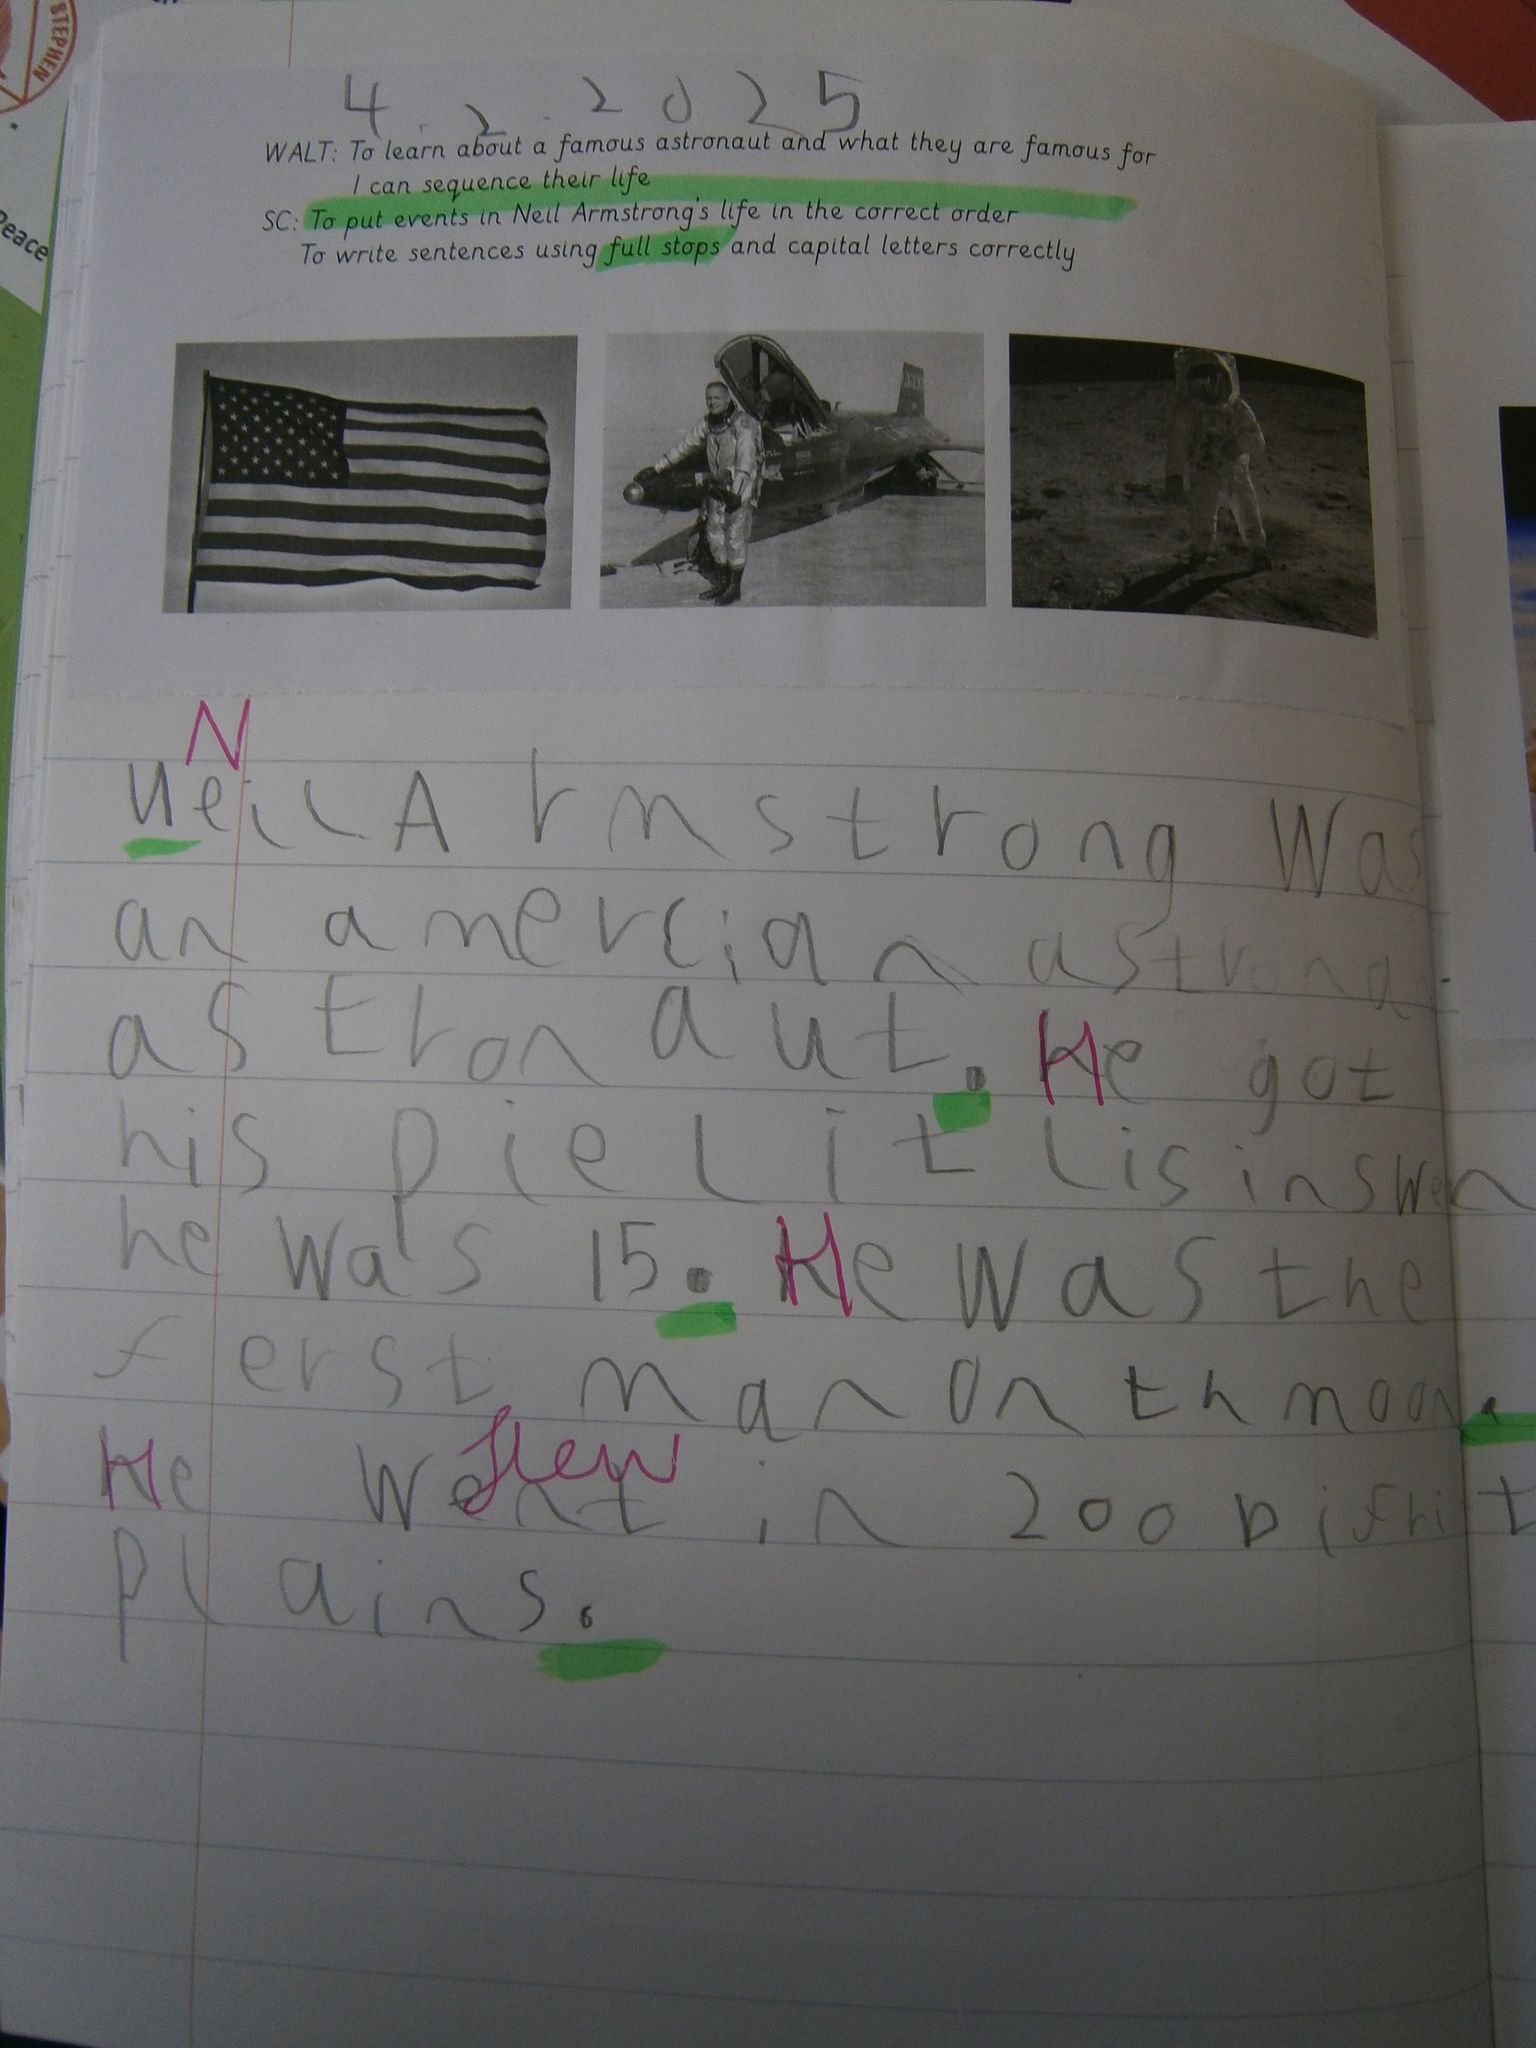 STEPHEN
Peace
4.2.2025
WALT: To learn about a famous astronaut and what they are famous for
I can sequence their life
SC: To put events in Neil Armstrong's life in the correct order
To write sentences using full stops and capital letters correctly
N
neil Armstrong Was
an amercian astrona
astronaut. He got
his pielit lisins wen
he was 15. He was the
ferst man on th moon.
flew
He went in 200 difrit
plains.